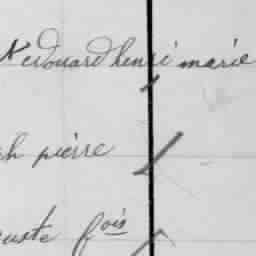 edouard henri marie
ph pierre
uste fois